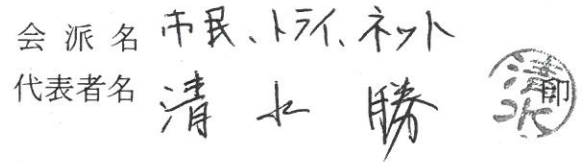 会派名 市民、トライ、ネット
代表者名 清水 勝 印
清水